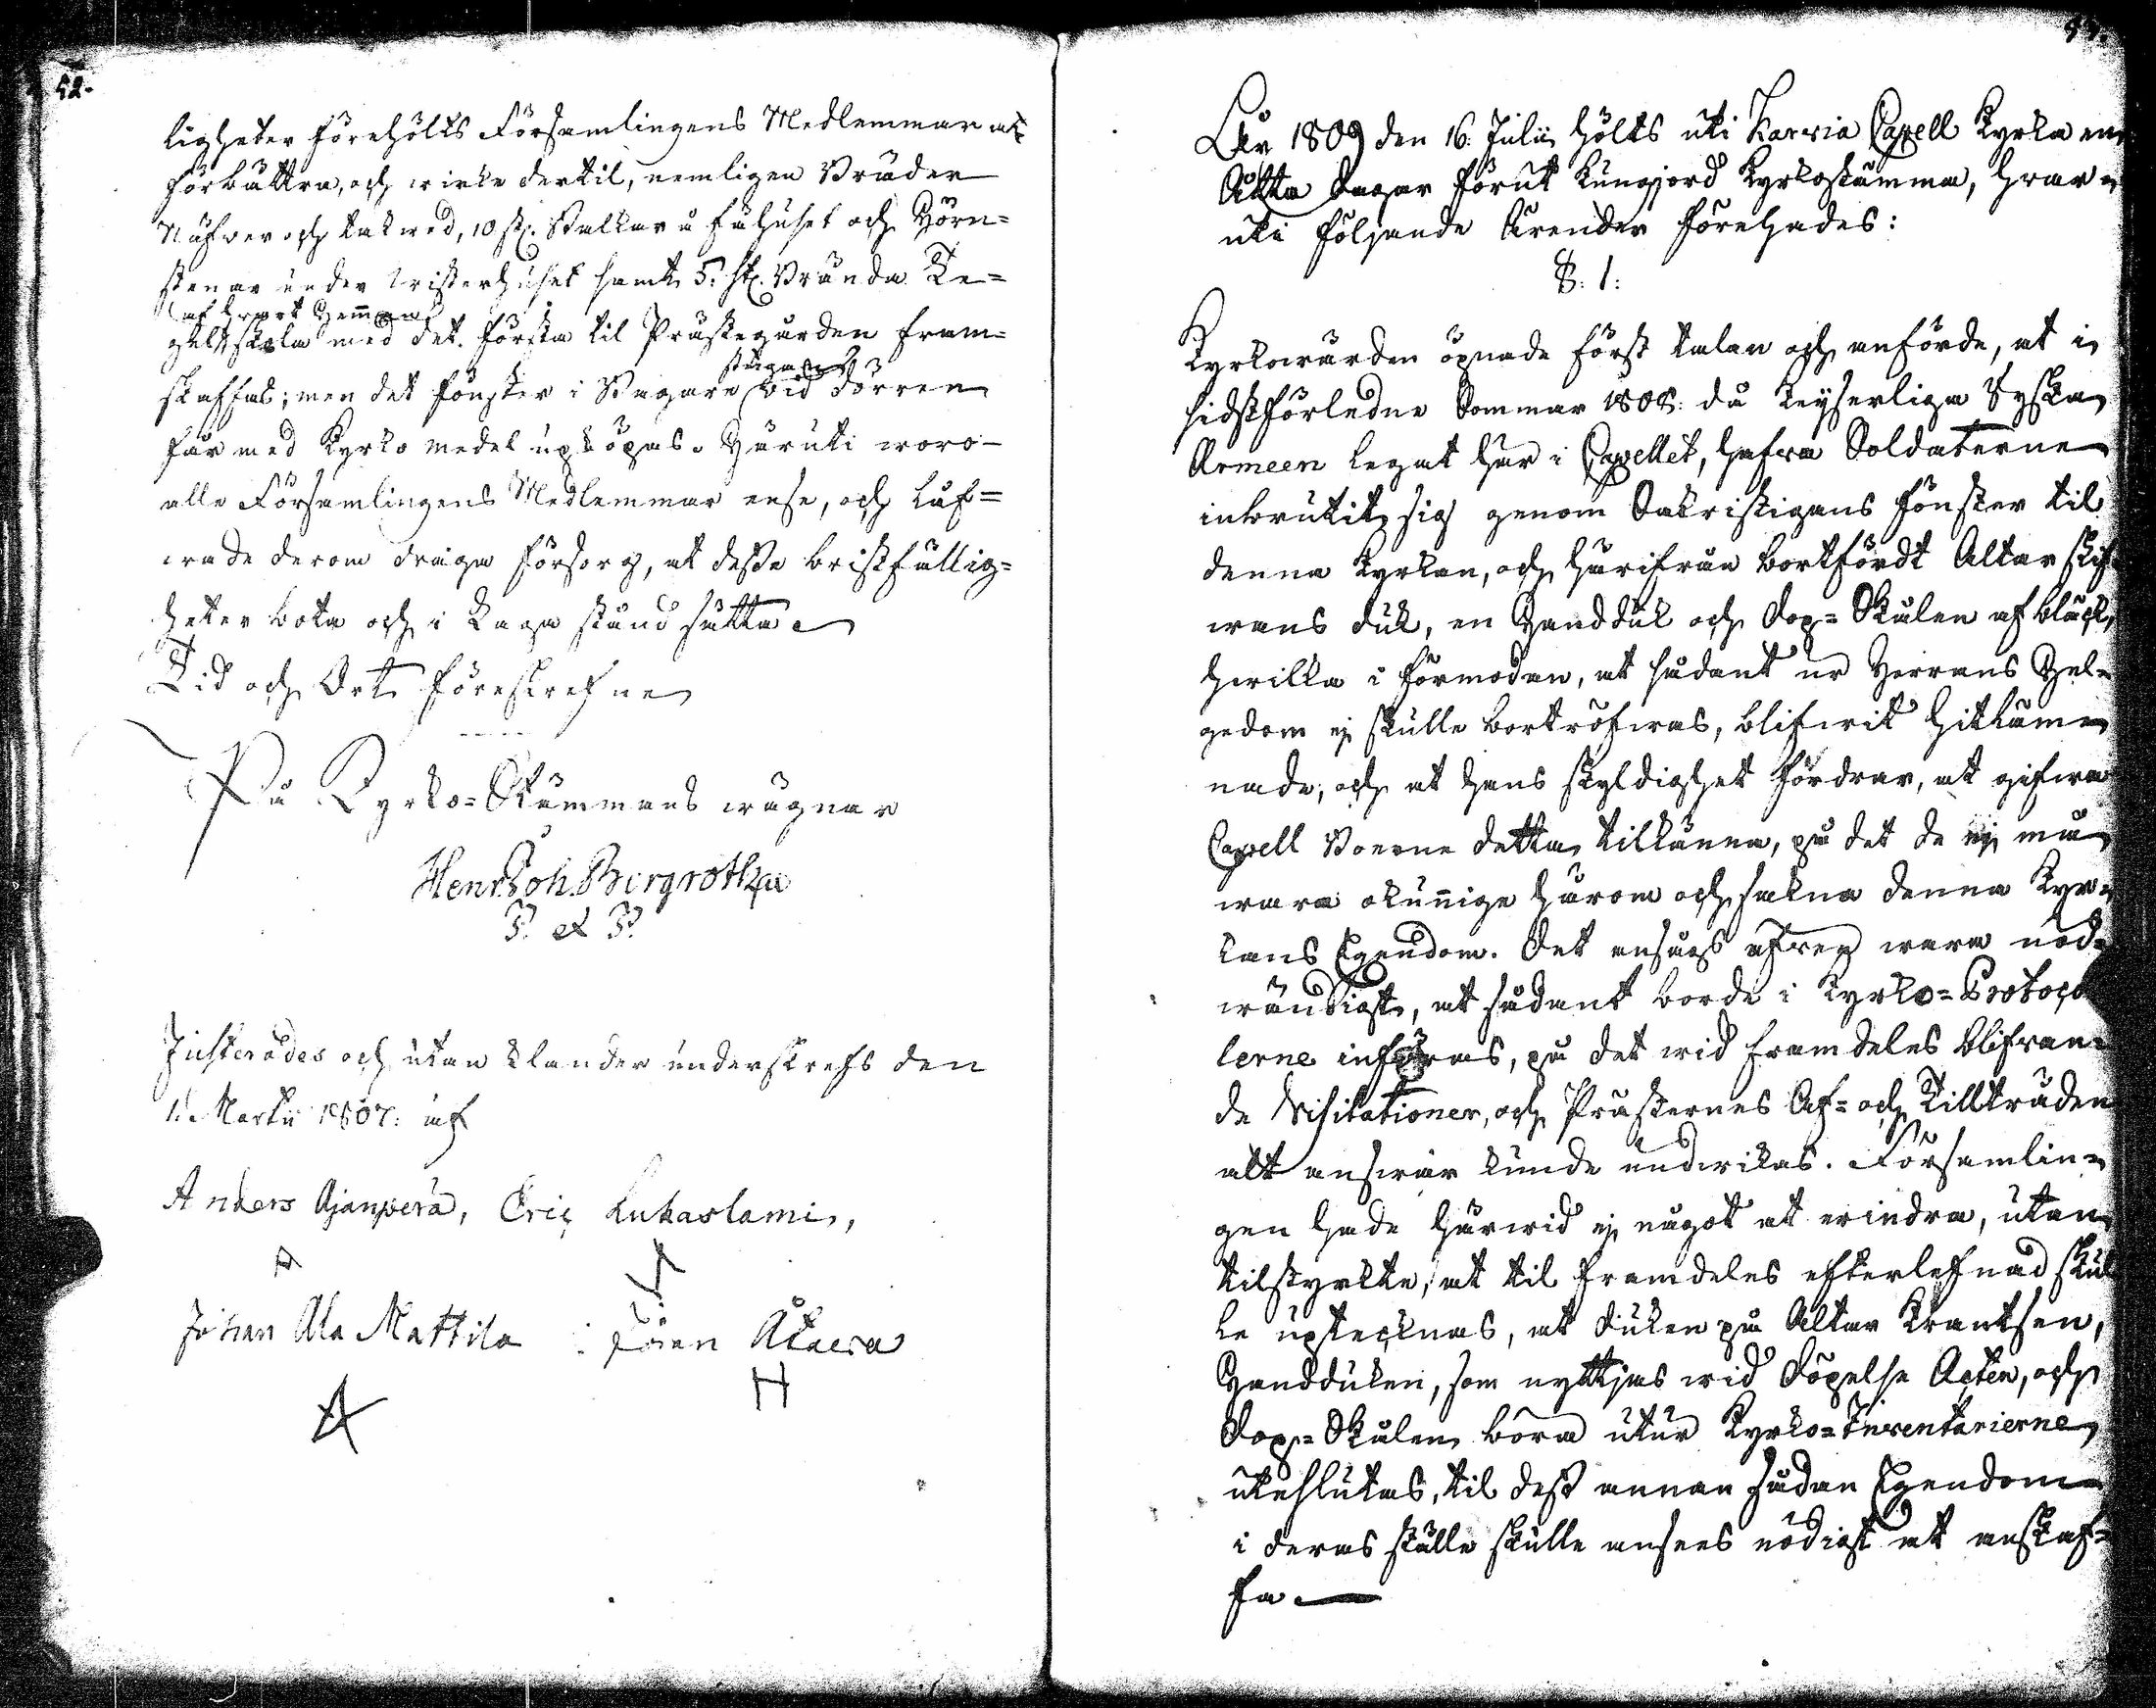 52.
ligheter föreholts Församlingens Medlemmar at
förbättra, och wirke dertil, nemligen Bräder
Näfwer och takwed, 10 st. Stallar å fähuset och Hörn=
stenar under Wisterhuset samt 5. st. Brända Te=
af hwart Hemman
gel, skola med det första til Prästegården fram=
skaffas; men det fönster i Bagare stugan wid dörren
får med Kyrko medel upköpas. Häruti woro
alle Församlingens Medlemmar ense, och låf=
wade derom draga försorg, at desse bristfällig=
heter bota och i Laga stånd sätta.
Tid och Ort föreskrefne
På Kyrko=Stämmans wägnar
Henr. Joh. Bergroth
P. et P.
Justerades och utan klander underskrefs den
1. Martii 1807: af
Anders Ajanperä, Eric Luhaslami,
Johan Ala Mattila
53.
År 1809 den 16. Julii hölts uti Karvia Capell Kyrka en
Åtta Dagar förut kungjord Kyrkostämma, hwar=
uti följande Ärender förehades:
§. 1:
Kyrkowärden öpnade först talan och anförde, at i
sidstförledne Sommar 1808: då Keyserliga Ryska
Armeen legat här i Capellet, hafwa Soldaterne
inbrutit sig genom Sakristigans fönster til
denna Kyrkan, och härifrån bortfördt Altar skif=
wans duk, en Handduk och Dop=Skålen af bläck,
hwilka i förmodan, at sådant ur Herrans Hel=
gedom ej skulle bortröfwas, blifwit hitläm=
nade, och at hans skyldighet fordrar, at gifwa
Capell Boerne detta tilkänna, på det de ej må
wara okunnige härom och sakna denna Kyr=
kans Egendom. Det ansågs äfwen wara nöd=
wändigt, at sådant borde i Kyrko=Protocol
lerne införas, på det wid framdeles blifwan=
de Visitationer, och Prästernes Af= och Tillträden
alt answar kunde undwikas. Församlin=
gen hade härwid ej något at erindra, utan
tilstyrkte, at til framdeles efterlefnad skul
le upteçknas, at duken på Altar Krantsen,
Handduken, som nyttjas wid Döpelse Acten, och
Dop=Skålen böra utur Kyrko=Inventarierne
uteslutas, til dess annan sådan Egendom
i deras ställe skulle anses nödigt at anskaf=
fa